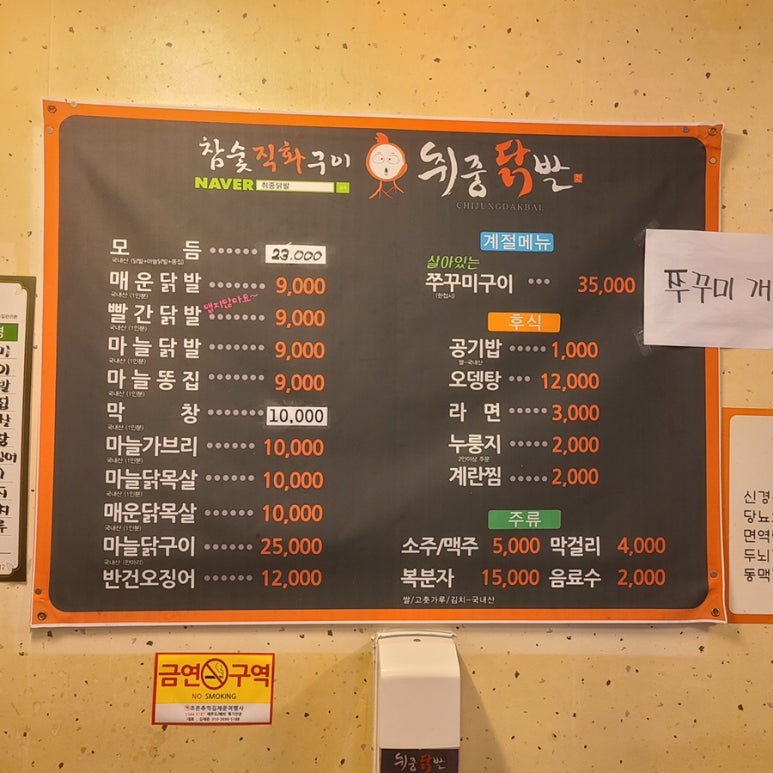 참숯직화구이
NAVER 취중닭발
취중닭발
CHIJUNGDAKBAL
모 듬 23,000
국내산 (닭발+마늘닭발+똥집)
매운닭발 9,000
국내산 (1인분)
맵지않아요~
빨간닭발 9,000
국내산 (1인분)
마늘닭발 9,000
국내산 (1인분)
마늘똥집 9,000
국내산 (1인분)
막 창 10,000
국내산 (1인분)
마늘가브리 10,000
국내산 (1인분)
마늘닭목살 10,000
국내산 (1인분)
매운닭목살 10,000
국내산 (1인분)
마늘닭구이 25,000
국내산 (한마리)
반건오징어 12,000
계절메뉴
살아있는
쭈꾸미구이 35,000
(한접시)
후식
공기밥 1,000
쌀-국내산
오뎅탕 12,000
라면 3,000
누룽지 2,000
2인이상 주문
계란찜 2,000
주류
소주/맥주 5,000 막걸리 4,000
복분자 15,000 음료수 2,000
쌀/고춧가루/김치-국내산
쭈꾸미 개
신경
당뇨
면역
두뇌
동맥
금연구역
NO SMOKING
취중닭발